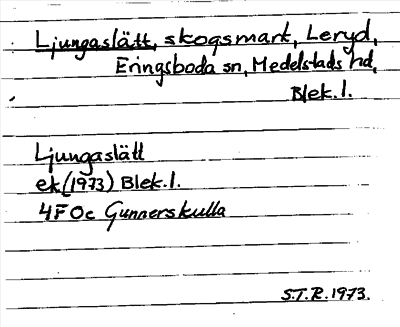 Ljungaslätt, skogsmark, Leryd,
Eringsboda sn, Medelstads hd,
Blek.l.
Ljungaslätt
ek (1973) Blek.l.
4F 0c Gunnerskulla
S.T.R. 1973.